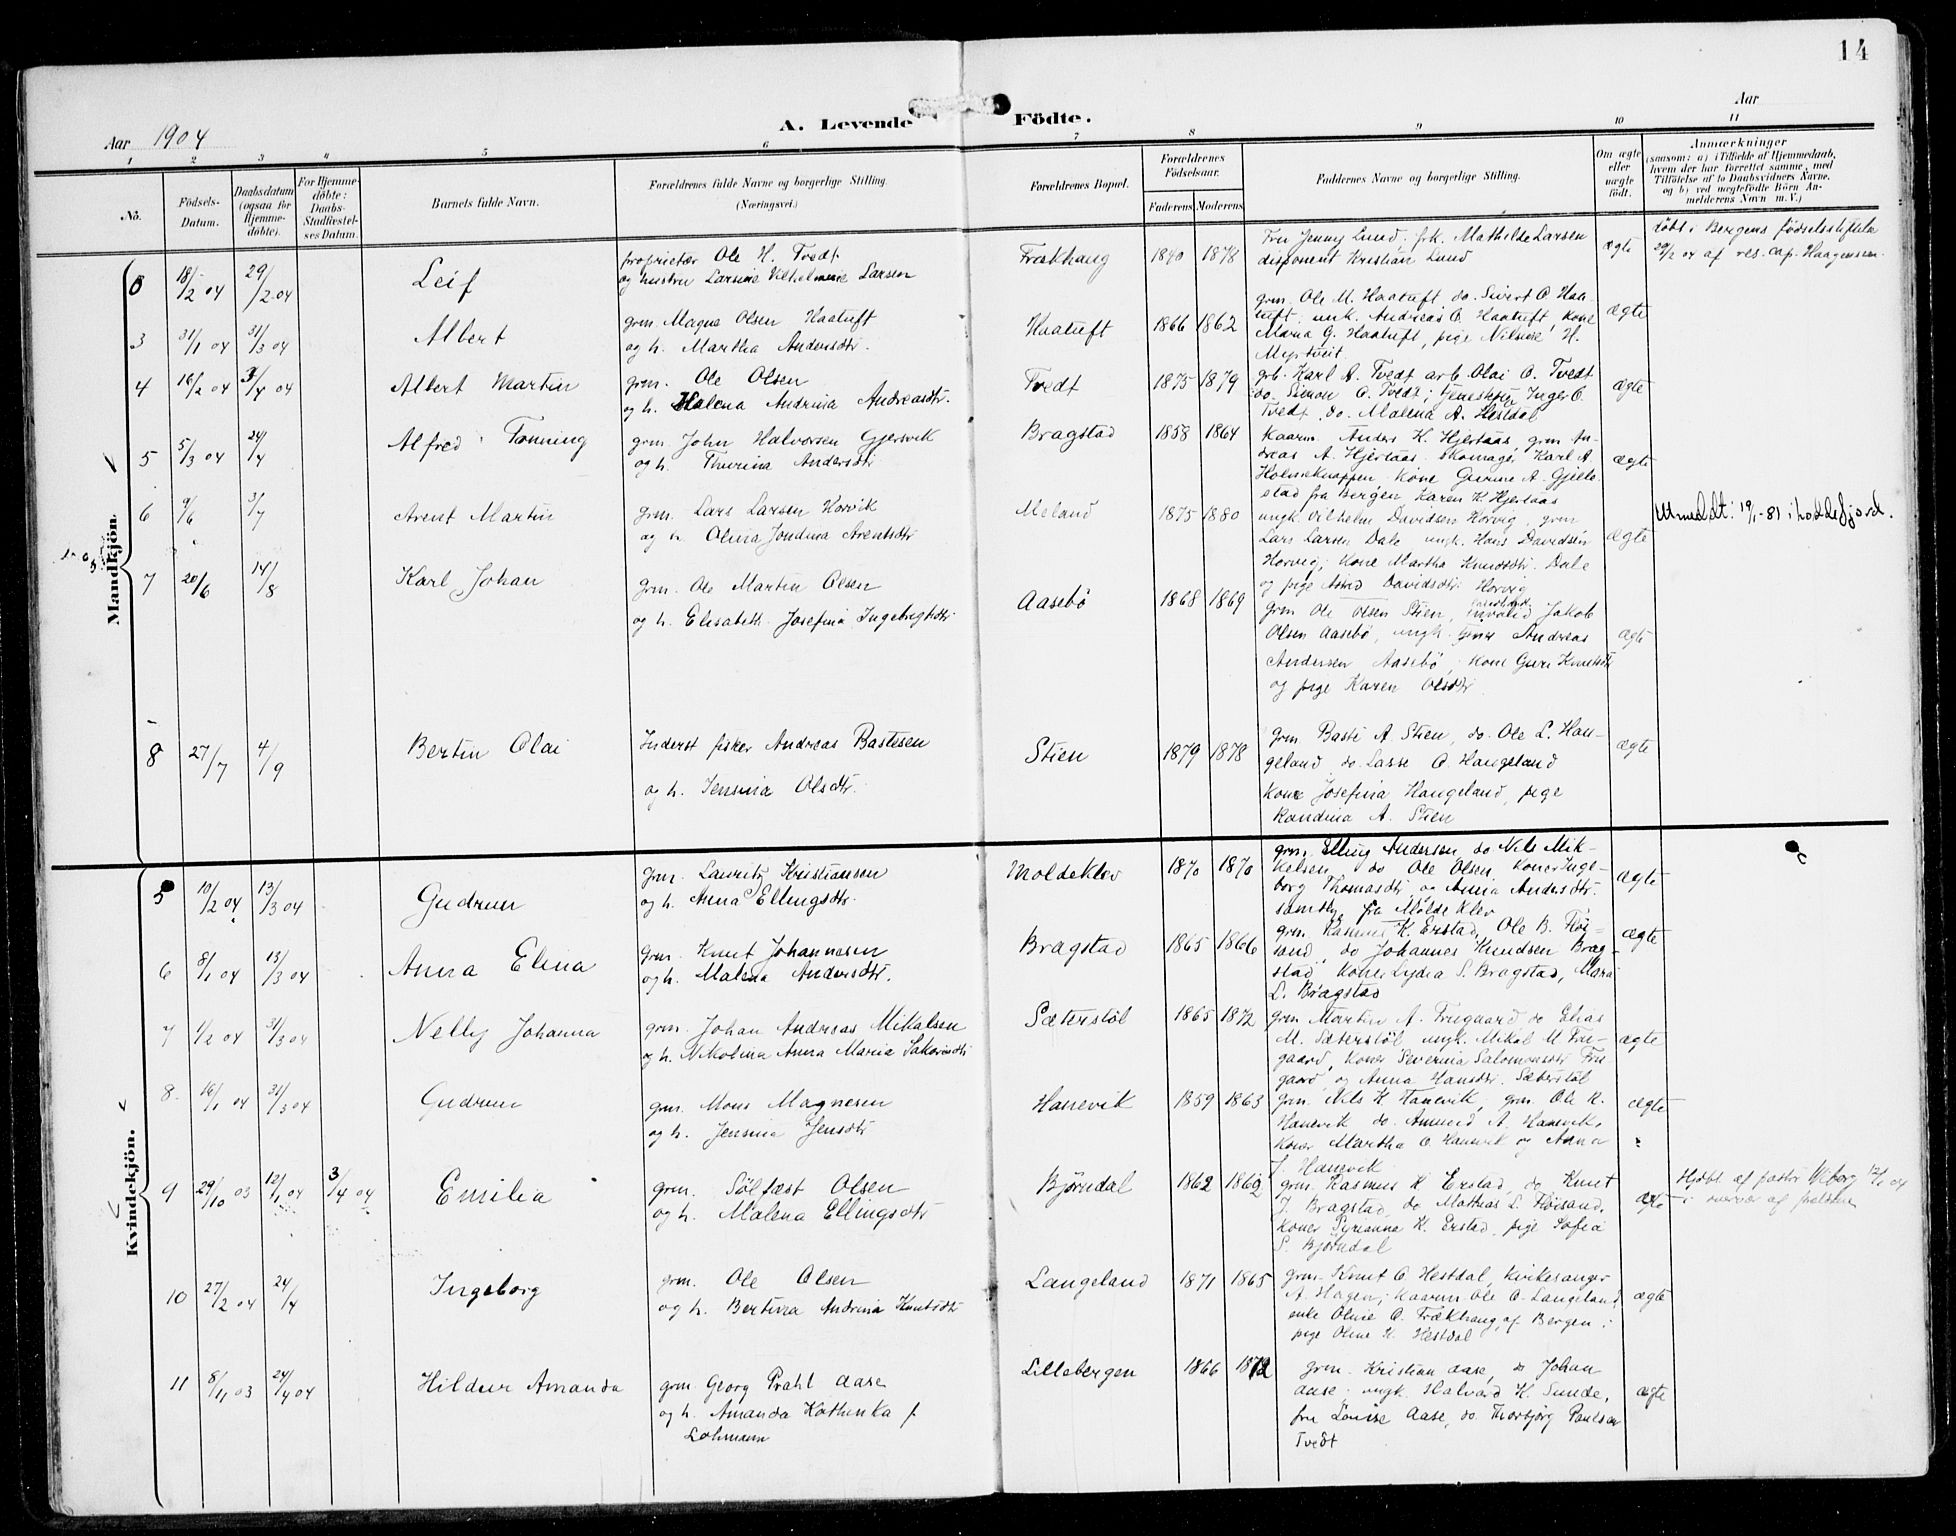 14
Aar 1904
A. Levende Födte.
Aar
1 2 3 4 5 6 7 8 9 10 11
No.
Födsels-Datum.
Daabsdatum (ogsaa for Hjemme-döbte).
For Hjemme-döbte: Daabs-Stadfæstel-ses Datum.
Barnets fulde Navn.
Forældrenes fulde Navne og borgerlige Stilling.
(Næringsvei.)
Forældrenes Bopæl.
Forældrenes Födselsaar.
Faderens Moderens
Faddernes Navne og borgerlige Stilling.
Om ægte eller uægte födt.
Anmærkninger
(saasom: a) i Tilfælde af Hjemmedaab, hvem der har forrettet samme, med Tilföielse af to Daabsvidners Navne, og b) ved uægtefödte Börn An-melderens Navn m. V.)
Mandkjön.
18/2 04 29/2 04 Leif
proprietær Ole H. Tvedt
og hustru Larsine Vilhelmine Larsen
Frækhaug 1840 1878
Fru Jenny Lund, frk. Mathilde Larsen
disponent Kristian Lund
ægte
döbt i Bergens födselsstiftelse
29/2 04 af res. cap. Haagensen
3 31/1 04 31/3 04 Albert
grm. Magne Olsen Haatuft
og h. Martha Andersdtr.
Haatuft 1866 1862
grm. Ole M. Haatuft, do. Sivert O. Haa-
tuft, ungk. Andreas O. Haatuft, kone
Maria G. Haatuft, pige Nilsine H.
Mjøtveit.
ægte
4 16/2 04 3/4 04 Albert Martin
grm. Ole Olsen
og h. Malena Andrina Andreasdtr.
Tvedt 1875 1879
grb. Karl A. Tvedt arb. Olai O. Tvedt
do. Simon O. Tvedt; tjenestepige Inger O.
Tvedt, do. Malena A. Hestdal
ægte
5 5/3 04 24/4 Alfred Tonning
grm. John Halvorsen Gjersvik
og h. Thurina Andersdtr
Bragstad 1858 1864
Kaarm. Anders K. Hjertaas, grm An-
dreas A. Hjertaas. Skomager Karl A.
Holmeknappen. Kone Gurine A. Gjelle-
stad fra Bergen, Karen K. Hjertaas
ægte
6 9/6 3/7 Arent Martin
grm. Lars Larsen Horvik
og h. Olina Jondina Arentsdtr
Meland 1875 1880
ungk. Vilhelm Davidsen Horvig, grm.
Lars Larsen Dale ungk. Hans Davidsen
Horvig; Kone Martha Knudsdtr. Dale
og pige Astrid Davidsdtr. Horvig
ægte
Utmeldt: 19/1-81 i Loddefjord.
7 20/6 14/8 Karl Johan
grm. Ole Martin Olsen
og h. Elisabeth Josefina Ingebrigtsdtr
Aasebö 1868 1869
grm Ole Olsen Stien, invalid Jakob
Olsen Aasebö, ungk. Andreas
Andersen Aasebö, kone Guri Knutsdtr
og pige Karen Olsdtr
ægte
8 27/7 4/9 Bertin Olai
Inderst fisker Andreas Bastesen
og h. Jensina Olsdtr.
Stien 1879 1878
grm Basti A Stien, do. Ole L. Hau-
geland do. Lasse O. Haugeland
Kone Josefina Haugeland, pige
Randina A. Stien
ægte
Kvindekjön.
5 10/2 04 13/3 04 Gudrun
grm. Lauritz Kristiansen
og h. Anna Ellingsdtr.
Moldeklev 1870 1870
grm. Elling Andersen do Nils Mik-
kelsen, do Ole Olsen, Koner Inge-
borg Thomasdtr og Anna Andersdtr.
samtlige fra Molde Klev
ægte
6 8/1 04 13/3 04 Anna Elina
grm. Knut Johannesen
og h. Malena Andersdtr.
Bragstad 1865 1866
grm. Rasmus K. Erstad, Ole B. Höi-
sand, do Johannes Knudsen Brag-
stad, Koner Lydia S. Bragstad, Mara
L. Bragstad
ægte
7 1/2 04 31/3 04 Nelly Johanna
grm. Johan Andreas Mikalsen
og h. Nikolina Anna Maria Sakariasdtr
Sæterstöl 1865 1872
grm Martin A. Fugaard do Elias
M. Sæterstöl ungk. Mikal M Fu-
gaard, Koner Severina Salomonsdtr Fu
gaard og Anna Hansdtr. Sæterstöl
ægte
8 16/1 04 31/3 04 Gudrun
grm. Mons Magnesen
og h. Jensina Jensdtr
Hanevik 1859 1863
grm. Nils K Hanevik, grm. Ole K.
Hanevik do. Amund A. Hanevik,
Koner Martha O. Hanevik og Anna
J. Hanevik
ægte
9 29/10 03 12/1 04 3/4 04 Emilia
grm. Sölfæst Olsen
og h. Malena Ellingsdtr
Björndal 1862 1862
grm. Rasmus K Erstad, do Knut
J. Bragstad, do Mathias L. Höisand,
Koner Syrianna K. Erstad, pige Sofia
S. Björndal
ægte
Hjdbt af pastor Wiborg 12/1 04
10 27/2 04 24/4 Ingeborg
grm. Ole Olsen
og h. Bertina Andrina Knutsdtr
Langeland 1871 1865
grm. Knut O. Hestdal, kirkesanger
A. Hagen; kaarm. Ole O. Langeland,
enke Oline O. Frækhaug, af Bergen;
pige Oline K. Hestdal
ægte
11 8/11 03 24/4 04 Hildur Amanda
grm Georg Prahl Aase
og h. Amanda Kathinka f.
Lohmann
Lillebergen 1866 1872
grm. Kristian Aase, do Johan
Aase, ungk. Halvard H. Sunde,
fru Louise Aase, do. Thorbjörg Paulsen
Tvedt
ægte